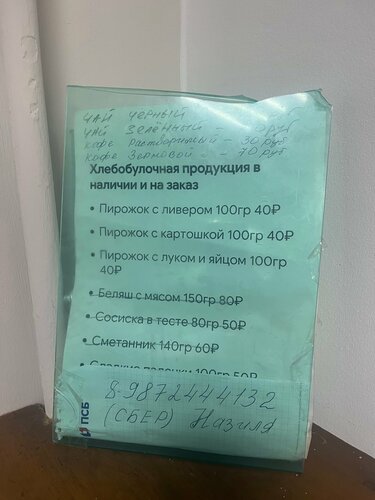 чай черный
чай зелёный - руб
кофе растворимый - 30 руб
кофе зерновой - 70 руб
Хлебобулочная продукция в
наличии и на заказ
• Пирожок с ливером 100гр 40₽
• Пирожок с картошкой 100гр 40₽
• Пирожок с луком и яйцом 100гр
40₽
• Беляш с мясом 150гр 80₽
• Сосиска в тесте 80гр 50₽
• Сметанник 140гр 60₽
Сладкие палочки 100гр 50₽
8-9872444132
(СБЕР) Назиля
ПСБ